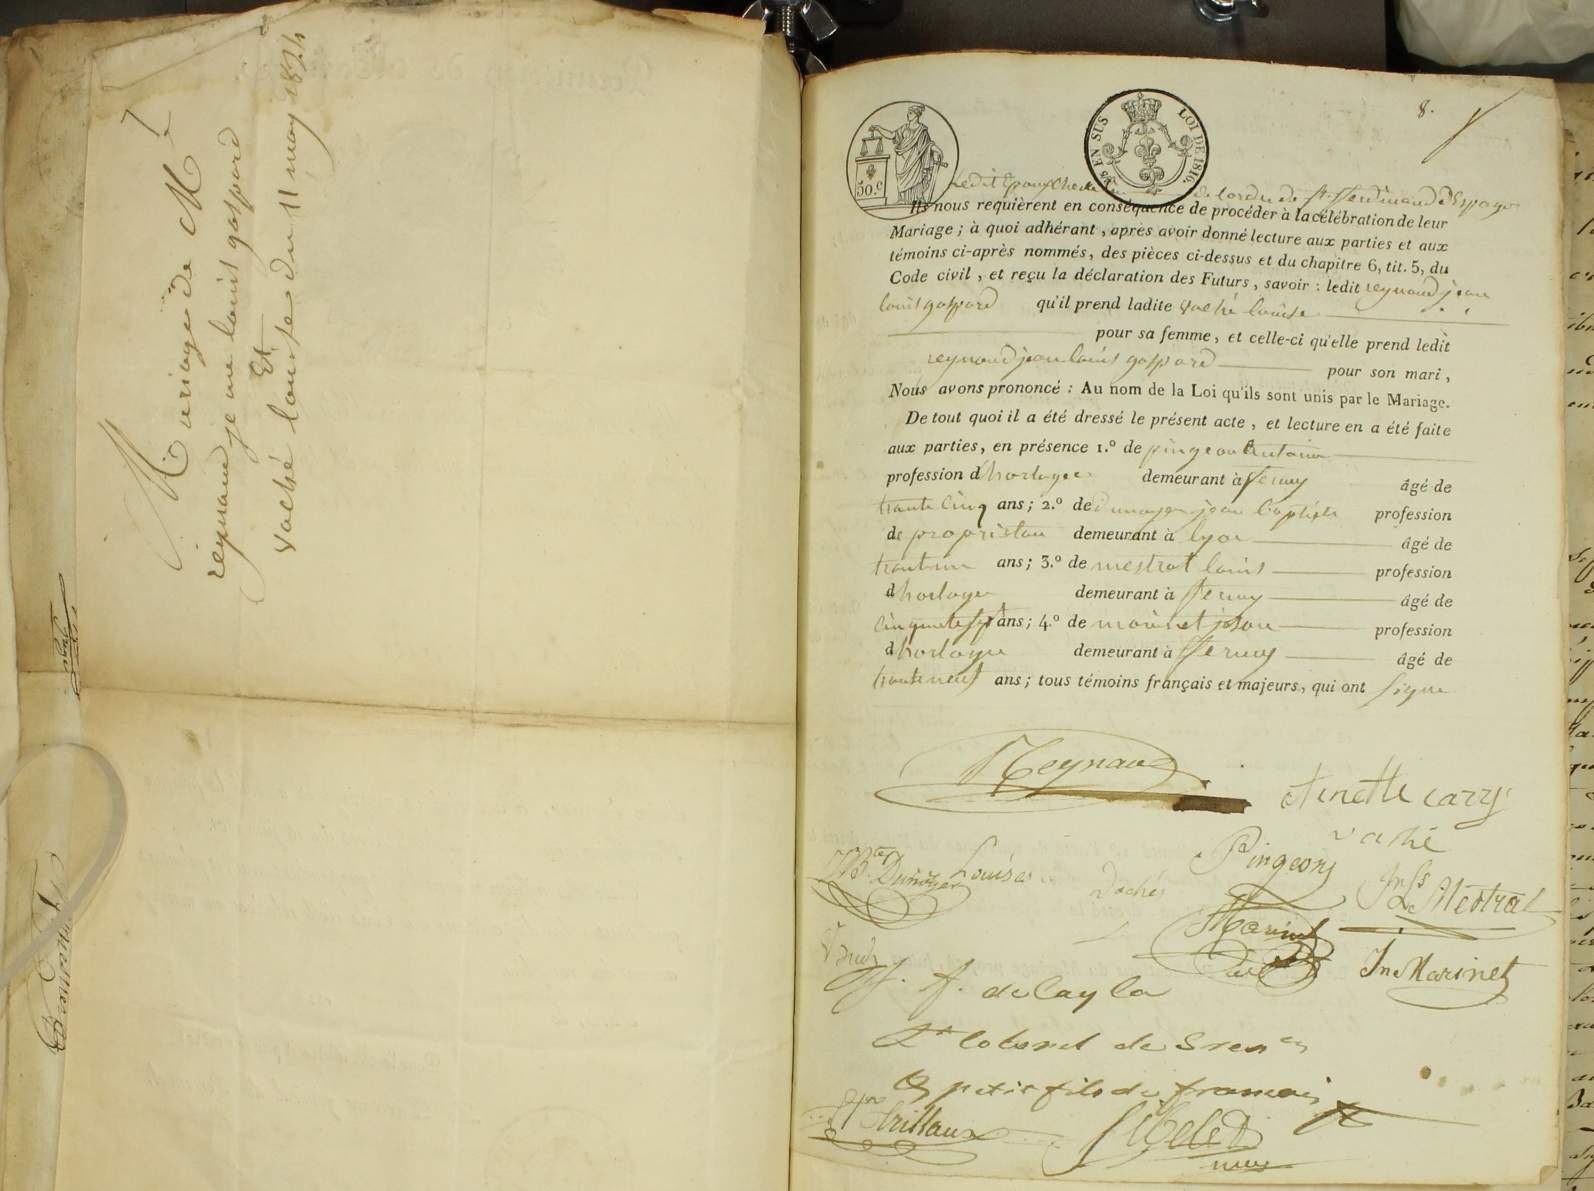 Mariage de Mr
reynaud jean louis gaspard
Et
vaché louise du 11 may 1824
8.
50.c
EN SUS LOI DE 1816.
Ledit Epoux de l'ordre de St. ferdinand d'Espagne
Ils nous requièrent en conséquence de procéder à la célébration de leur
Mariage ; à quoi adhérant , après avoir donné lecture aux parties et aux
témoins ci-après nommés, des pièces ci-dessus et du chapitre 6, tit. 5, du
Code civil , et reçu la déclaration des Futurs , savoir : ledit reynaud jean
louis gaspard qu'il prend ladite vaché louise
pour sa femme, et celle-ci qu'elle prend ledit
reynaud jean louis gaspard pour son mari ,
Nous avons prononcé : Au nom de la Loi qu'ils sont unis par le Mariage.
De tout quoi il a été dressé le présent acte , et lecture en a été faite
aux parties, en présence 1.º de pingeon Antoine
profession d'horloger demeurant à ferney âgé de
trente cinq ans ; 2.º de Dunoyer jean baptiste profession
de propriétaire demeurant à lyon âgé de
trente un ans ; 3.º de mestral louis profession
d'horloger demeurant à ferney âgé de
cinquante sept ans ; 4.º de morinet jean profession
d'horloger demeurant à ferney âgé de
trente neuf ans ; tous témoins français et majeurs, qui ont signé
Reynaud
etinette carry
vaché
JBte Dunoyer Louise Vaché Pingeon Jn Fs Le Mestral
Marinet Jn Marinet
f. delayla
Lt colonel de
petit fils de
Trillaux